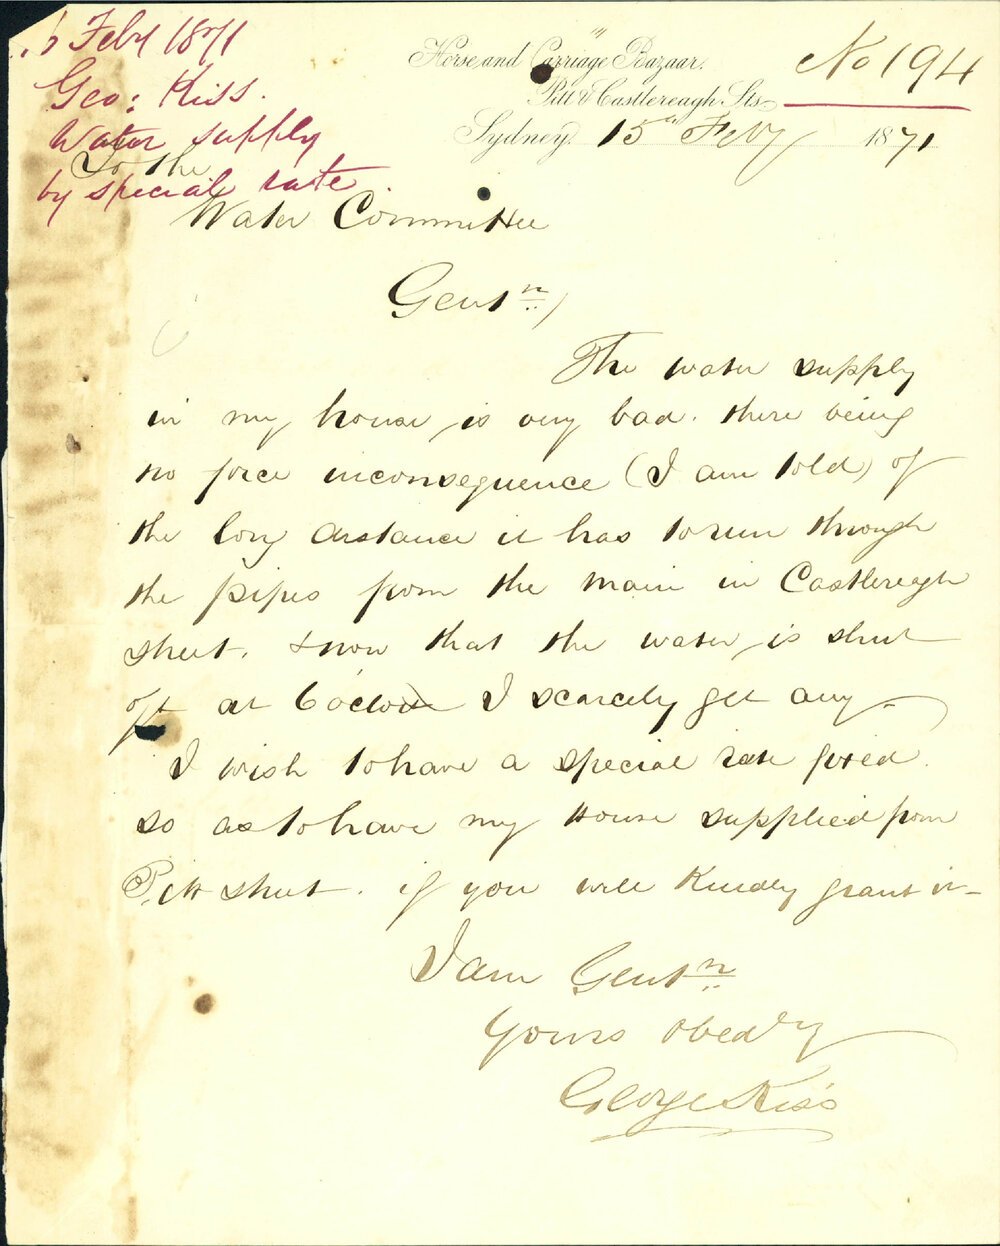 6 Feby 1871
Geo: Kiss.
Water supply
by special rate.
No 194
Horse and Carriage Bazaar.
Pitt & Castlereagh Sts
Sydney. 15th Feby 1871
To the
Water Committee
Gentn,
The water supply
in my house, is very bad. there being
no force inconsequence (I am told) of
the long distance it has to run through
the pipes from the main in Castlereagh
street. & now that the water, is shut
off at 6 oclock I scarcely get any.
I wish to have a special rate fixed.
so as to have my House supplied from
Pitt street. if you will Kindly grant it -
I am Gentn
Yours obedly
George Kiss